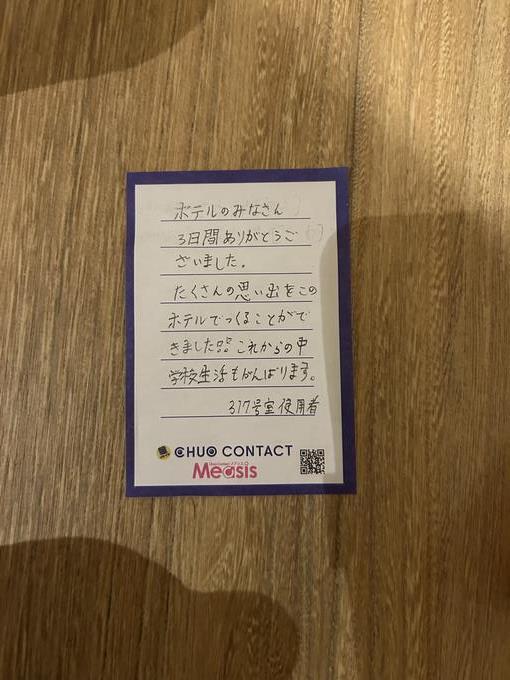 ホテルのみなさん
3日間ありがとうご
ざいました。
たくさんの思い出をこの
ホテルでつくることがで
きました
これからの中
学校生活もがんばります。
317号室使用者
CHUO CONTACT
Measis